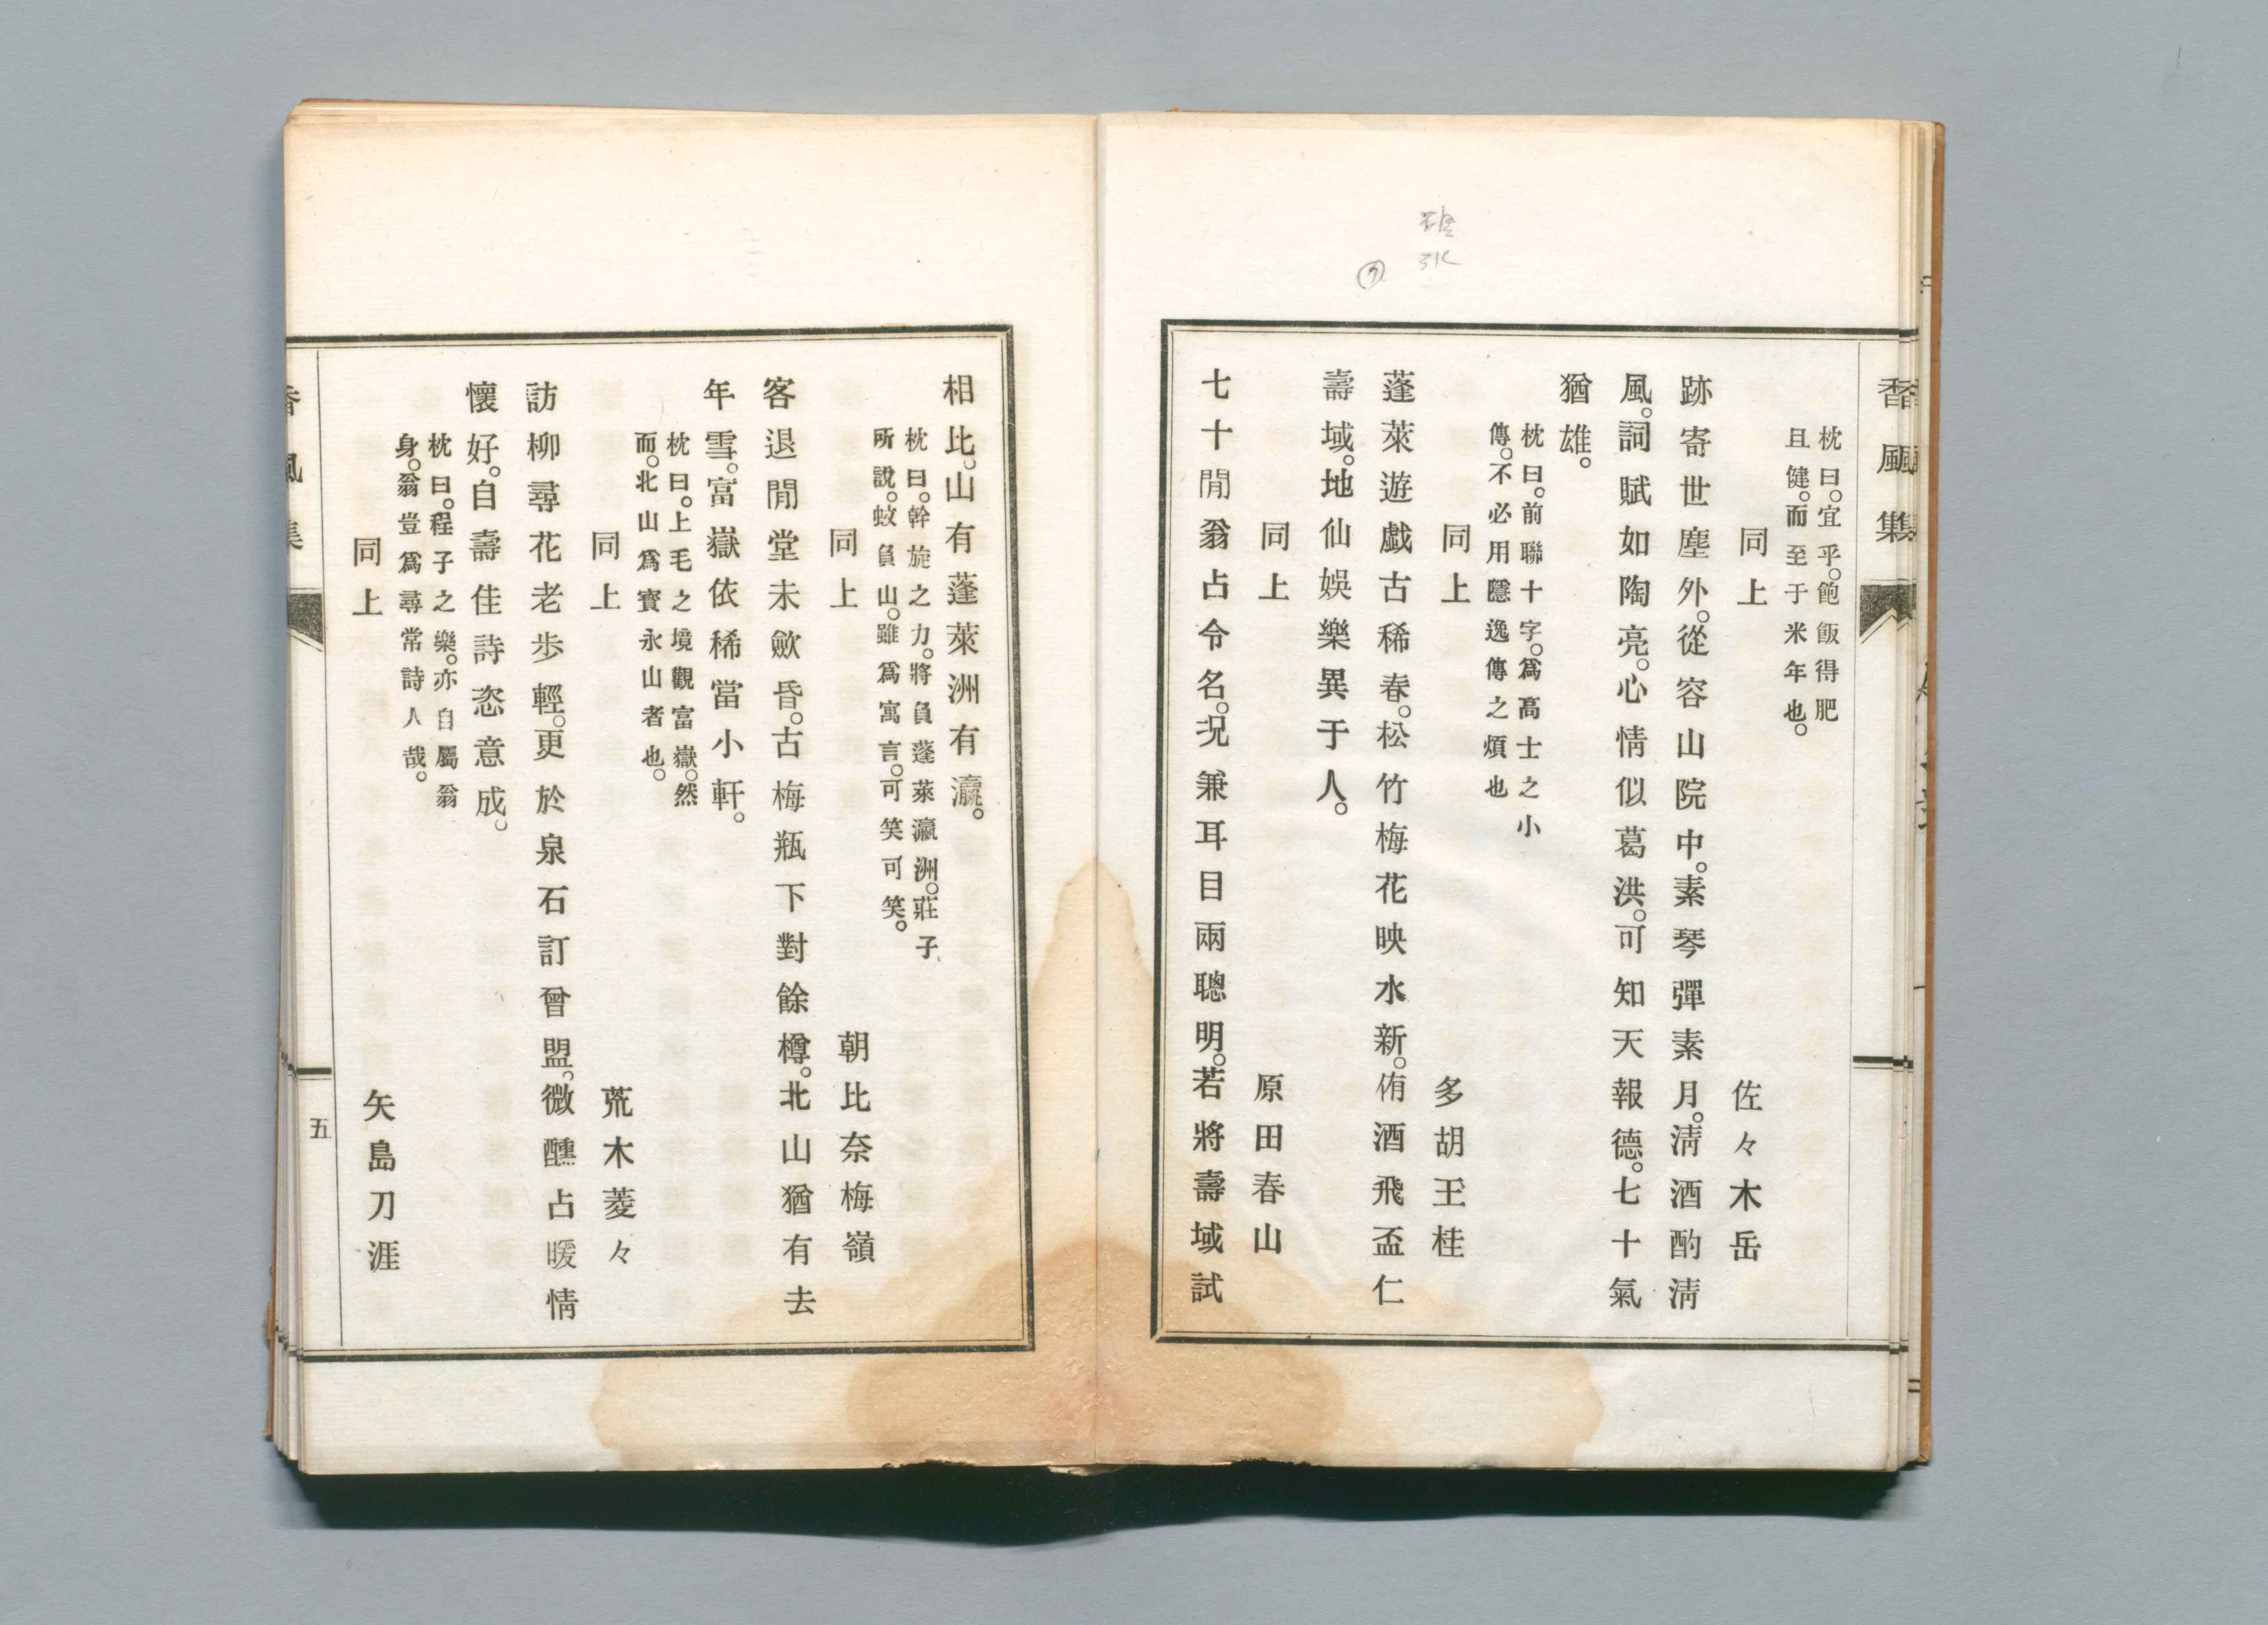 香風集
枕曰。宜乎。飽飯得肥
且健。而至于米年也。
同上　佐々木岳
跡寄世塵外。從容山院中。素琴彈素月。淸酒酌淸
風。詞賦如陶亮。心情似葛洪。可知天報德。七十氣
猶雄。
枕曰。前聯十字。爲高士之小
傳。不必用隱逸傳之煩也
同上　多胡王桂
蓬萊遊戯古稀春。松竹梅花映水新。侑酒飛盃仁
壽域。地仙娯樂異于人。
同上　原田春山
七十閒翁占令名。况兼耳目兩聰明。若將壽域試
相比。山有蓬萊洲有瀛。
枕曰。幹旋之力。將負蓬萊瀛洲。莊子
所說。蚊負山。雖爲寓言。可笑可笑。
同上　朝比奈梅嶺
客退閒堂未歛昏。古梅瓶下對餘樽。北山猶有去
年雪。富嶽依稀當小軒。
枕曰。上毛之境觀富嶽。然
而。北山爲實永山者也。
同上　荒木菱々
訪柳尋花老步輕。更於泉石訂曾盟。微醺占暖情
懷好。自壽佳詩恣意成。
枕曰。程子之樂。亦自屬翁
身。翁豈爲尋常詩人哉。
同上　矢島刀涯
香風集
五